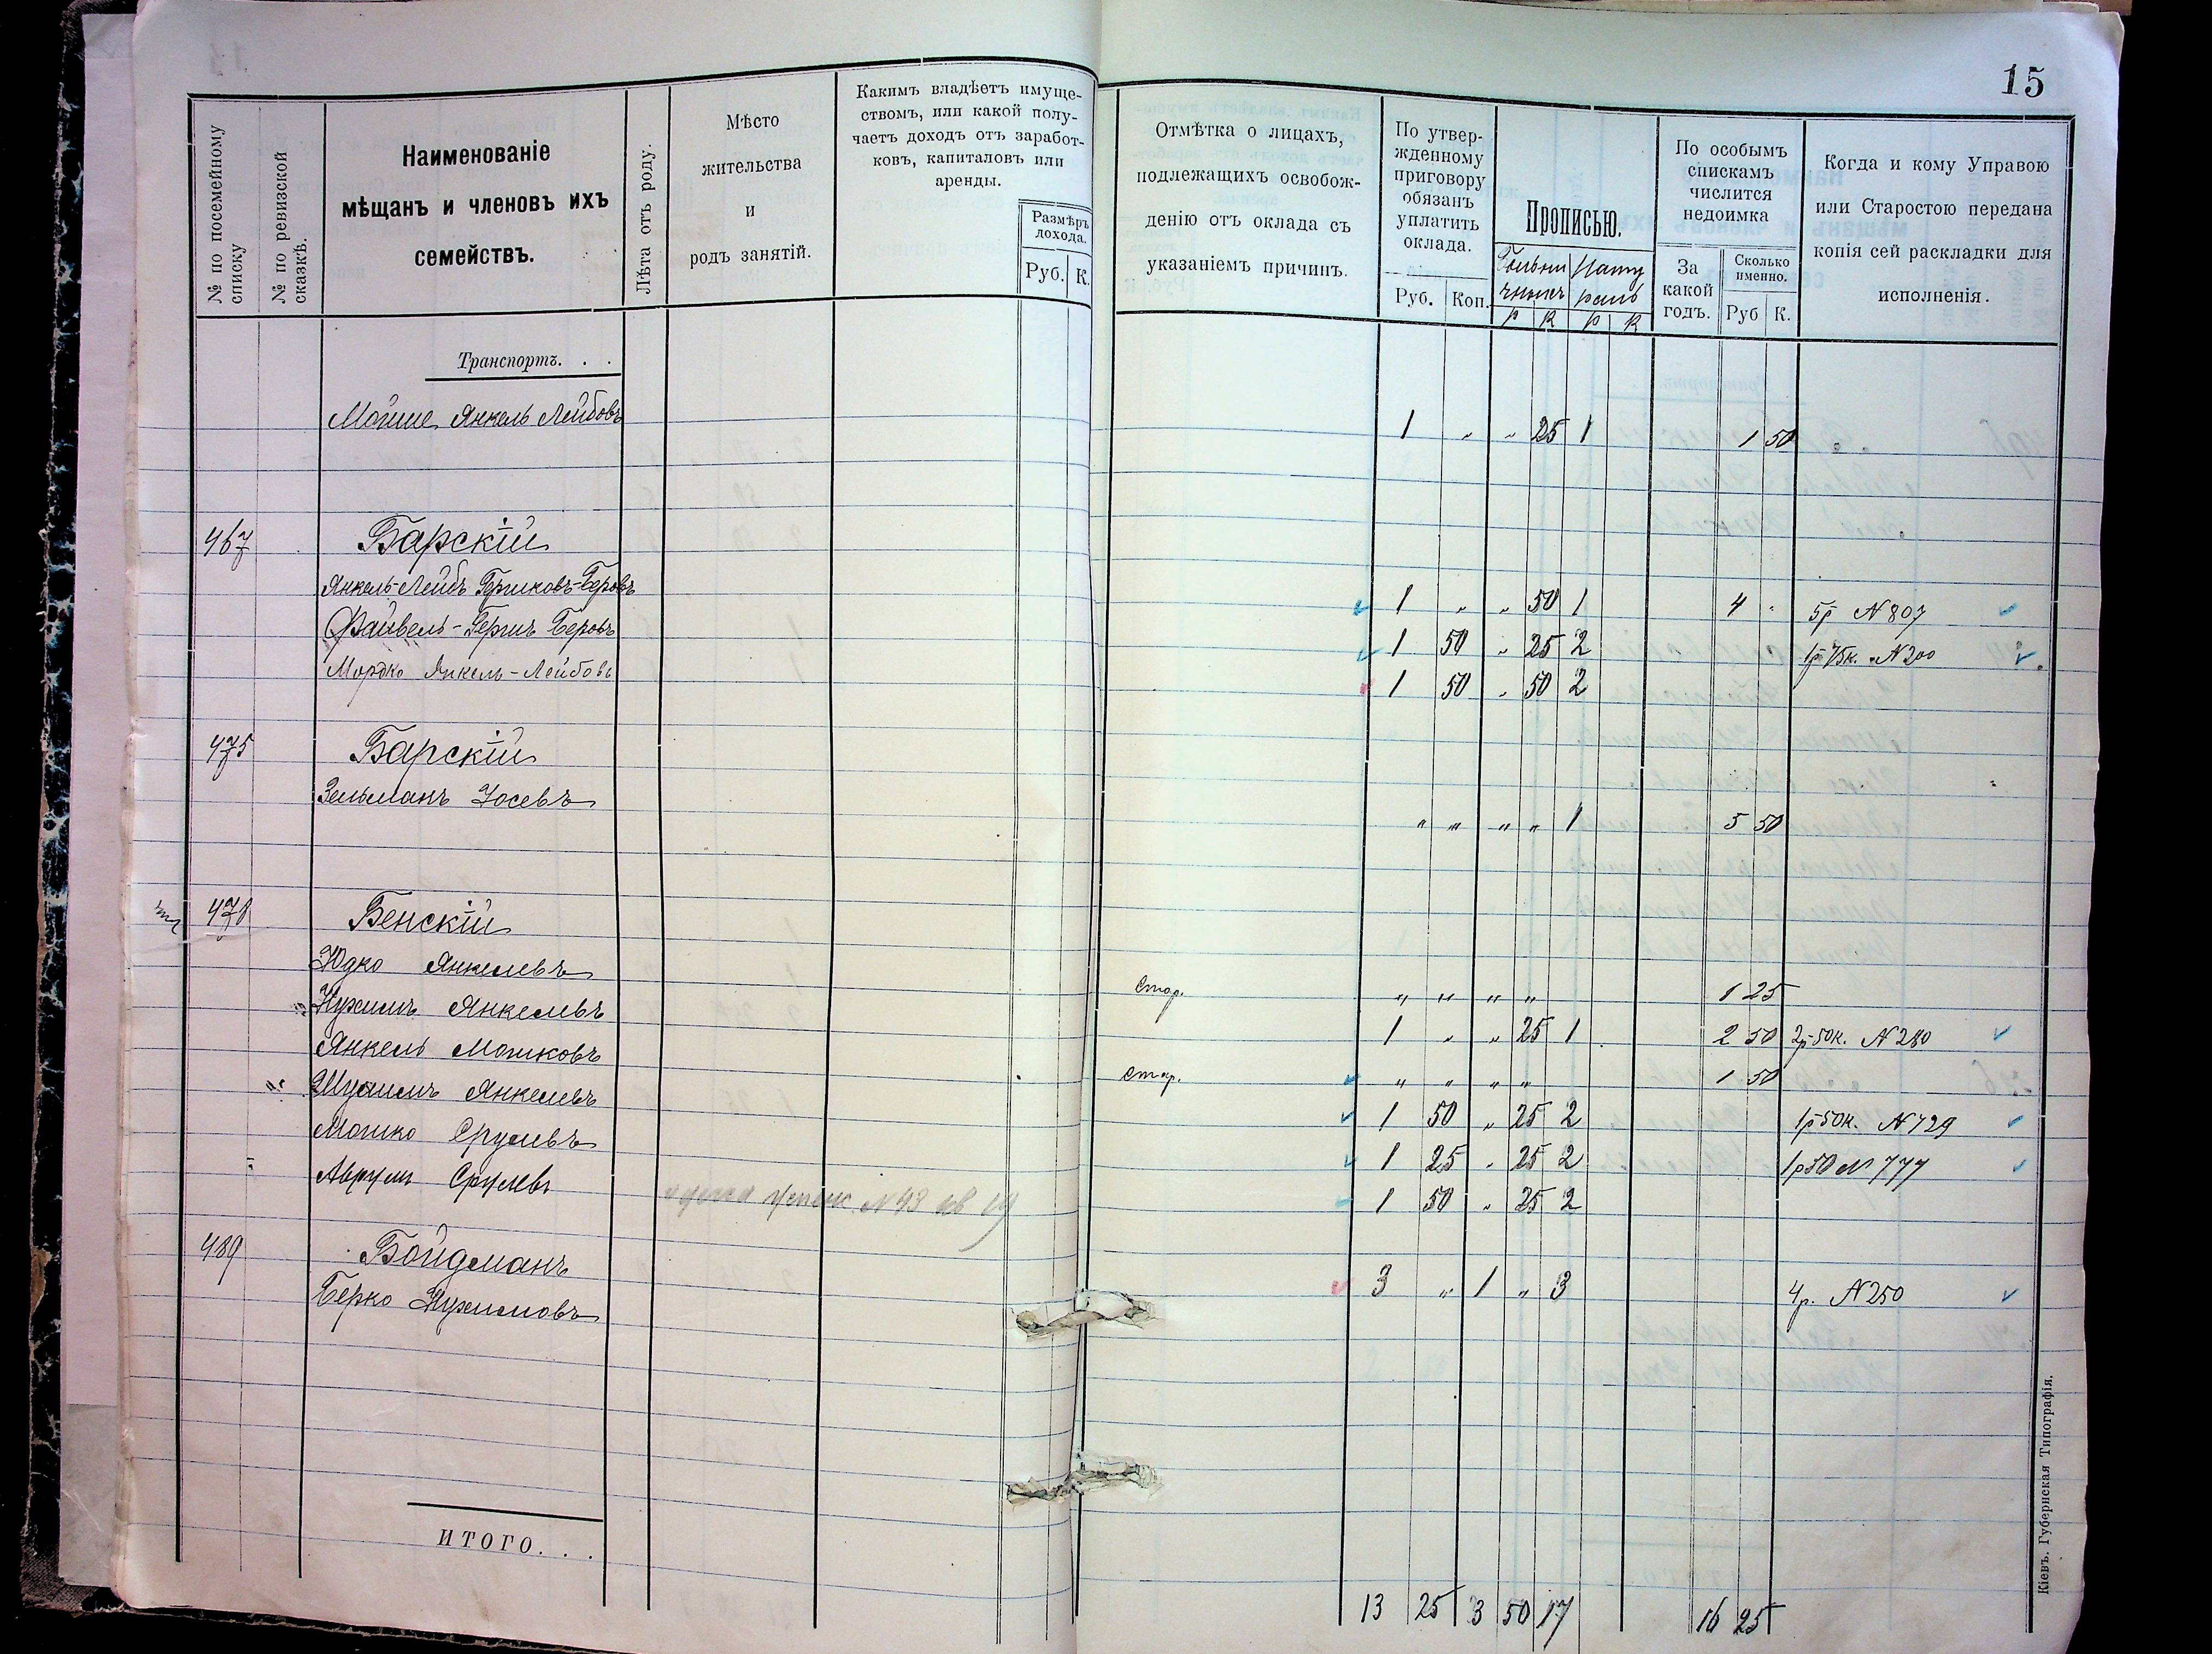 15
№ по посемейному списку
№ по ревизской сказкѣ.
Наименованіе
мѣщанъ и членовъ ихъ
семействъ.
Лѣта отъ роду.
Мѣсто
жительства
и
родъ занятій.
Какимъ владѣетъ имуще-
ствомъ, или какой полу-
чаетъ доходъ отъ заработ-
ковъ, капиталовъ или
аренды.
Размѣръ
дохода.
Руб. К.
Отмѣтка о лицахъ,
подлежащихъ освобож-
денію отъ оклада съ
указаніемъ причинъ.
По утвер-
жденному
приговору
обязанъ
уплатить
оклада.
Руб. Коп.
Прописью.
Больни
чныхъ
Нату
раль
р К р К
По особымъ
спискамъ
числится
недоимка
За
какой
годъ.
Сколько
именно.
Руб К.
Когда и кому Управою
или Старостою передана
копія сей раскладки для
исполненія.
Транспортъ. . .
Мойше Янкель Лейбовъ 1 „ „ 25 1 1 50 „ „
467 Барскій
Янкель-Лейбъ Гершковъ-Беровъ 1 „ „ 50 1 4 „ 5р N 807
Файвель-Гершъ Беровъ 1 50 „ 25 2 1р 75к. N 200
Мордко Янкель-Лейбовъ 1 50 „ 50 2
475 Барскій
Зельманъ Іосевъ „ „ „ „ 1 5 50
478 Бенскій
Юдко Янкелевъ Стар. „ „ „ „ 1 25
Нухимъ Янкелевъ 1 „ „ 25 1 2 50 2р 50к. N 280
Янкель Мошковъ Стар. „ „ „ „ 1 50
Шулимъ Янкелевъ 1 50 „ 25 2 1р 50к. N 729
Мошко Срулевъ 1 25 „ 25 2 1р 50 N 777
Аврумъ Срулевъ N 43 кв 19 1 50 „ 25 2
489 Бойдманъ
Берко Нухимовъ 3 „ 1 „ 3 4р. N 250
ИТОГО. . .
13 25 3 50 17 16 25
Кіевъ. Губернская Типографія.